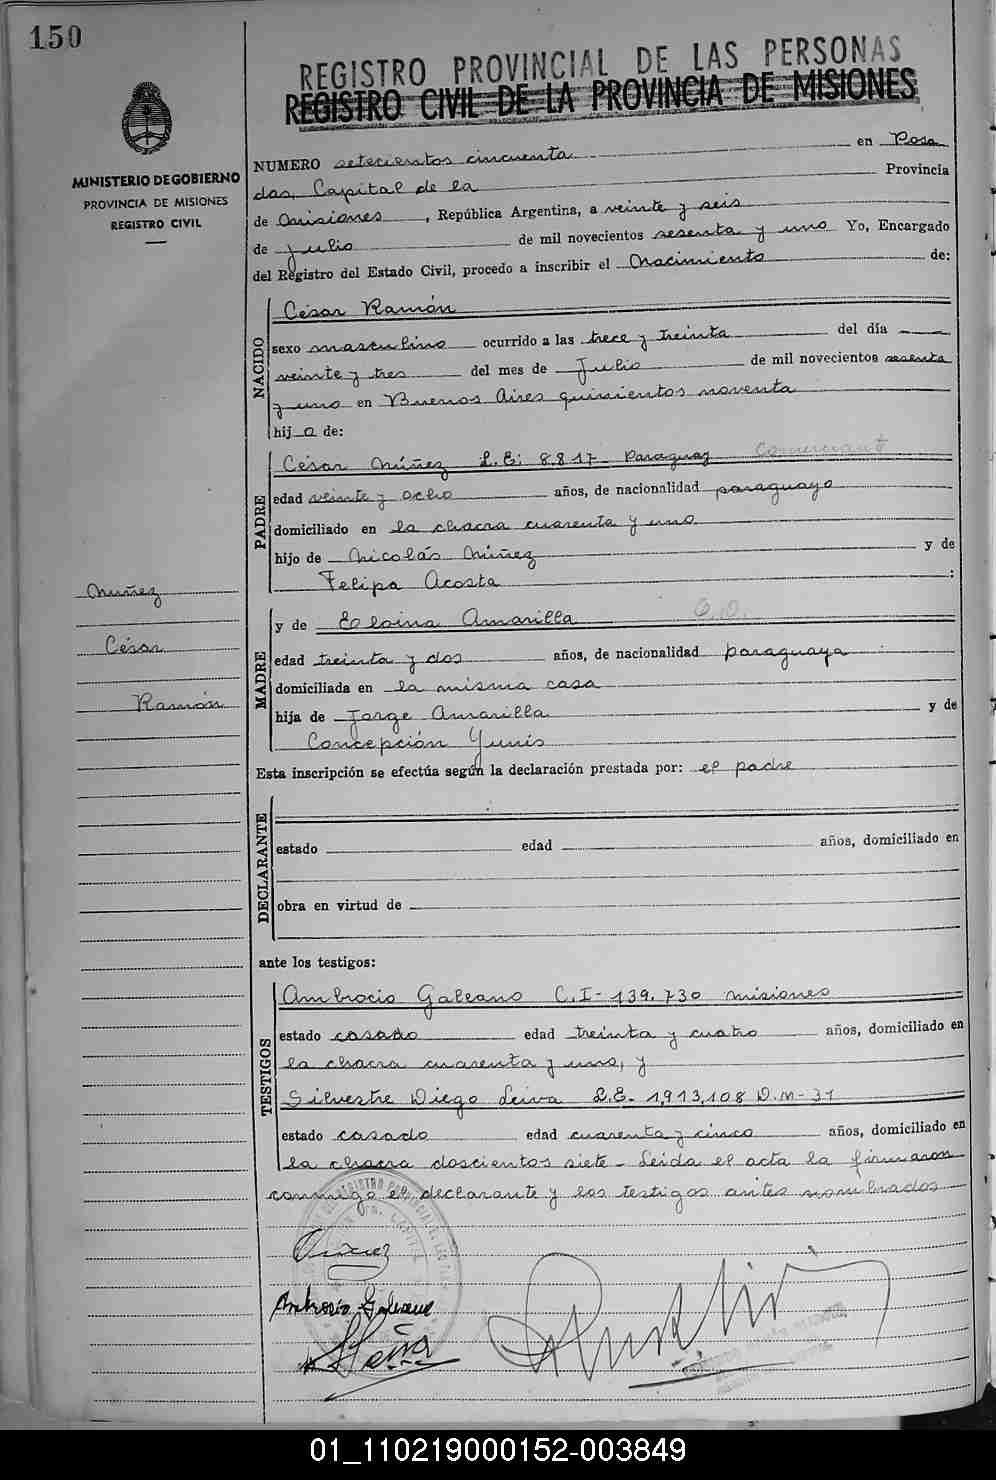 150
REGISTRO PROVINCIAL DE LAS PERSONAS
REGISTRO CIVIL DE LA PROVINCIA DE MISIONES
MINISTERIO DE GOBIERNO
PROVINCIA DE MISIONES
REGISTRO CIVIL
NUMERO setecientos cincuenta en Posa
das, Capital de la Provincia
de Misiones, República Argentina, a veinte y seis
de Julio de mil novecientos sesenta y uno Yo, Encargado
del Registro del Estado Civil, procedo a inscribir el Nacimiento de:
NACIDO
César Ramón
sexo masculino ocurrido a las trece y treinta del día
veinte y tres del mes de Julio de mil novecientos sesenta
y uno en Buenos Aires quinientos noventa
hijo de:
PADRE
César Núñez L.E: 8.817 Paraguay Comerciante
edad veinte y ocho años, de nacionalidad paraguayo
domiciliado en la chacra cuarenta y uno
hijo de Nicolás Núñez y de
Felipa Acosta :
Núñez
César
Ramón
MADRE
y de Eloina Amarilla Q.D.
edad treinta y dos años, de nacionalidad paraguaya
domiciliada en la misma casa
hija de Jorge Amarilla y de
Concepción Yunis
Esta inscripción se efectúa según la declaración prestada por: el padre
DECLARANTE
estado edad años, domiciliado en
obra en virtud de
ante los testigos:
TESTIGOS
Ambrocio Galeano C.I- 139.730 misiones
estado casado edad treinta y cuatro años, domiciliado en
la chacra cuarenta y uno, y
Silvestre Diego Leiva L.E- 1,913,108 D.M-31
estado casado edad cuarenta y cinco años, domiciliado en
la chacra doscientos siete- Leida el acta la firmaron
conmigo el declarante y los testigos antes nombrados
Ambrosio Galeano
01_110219000152-003849